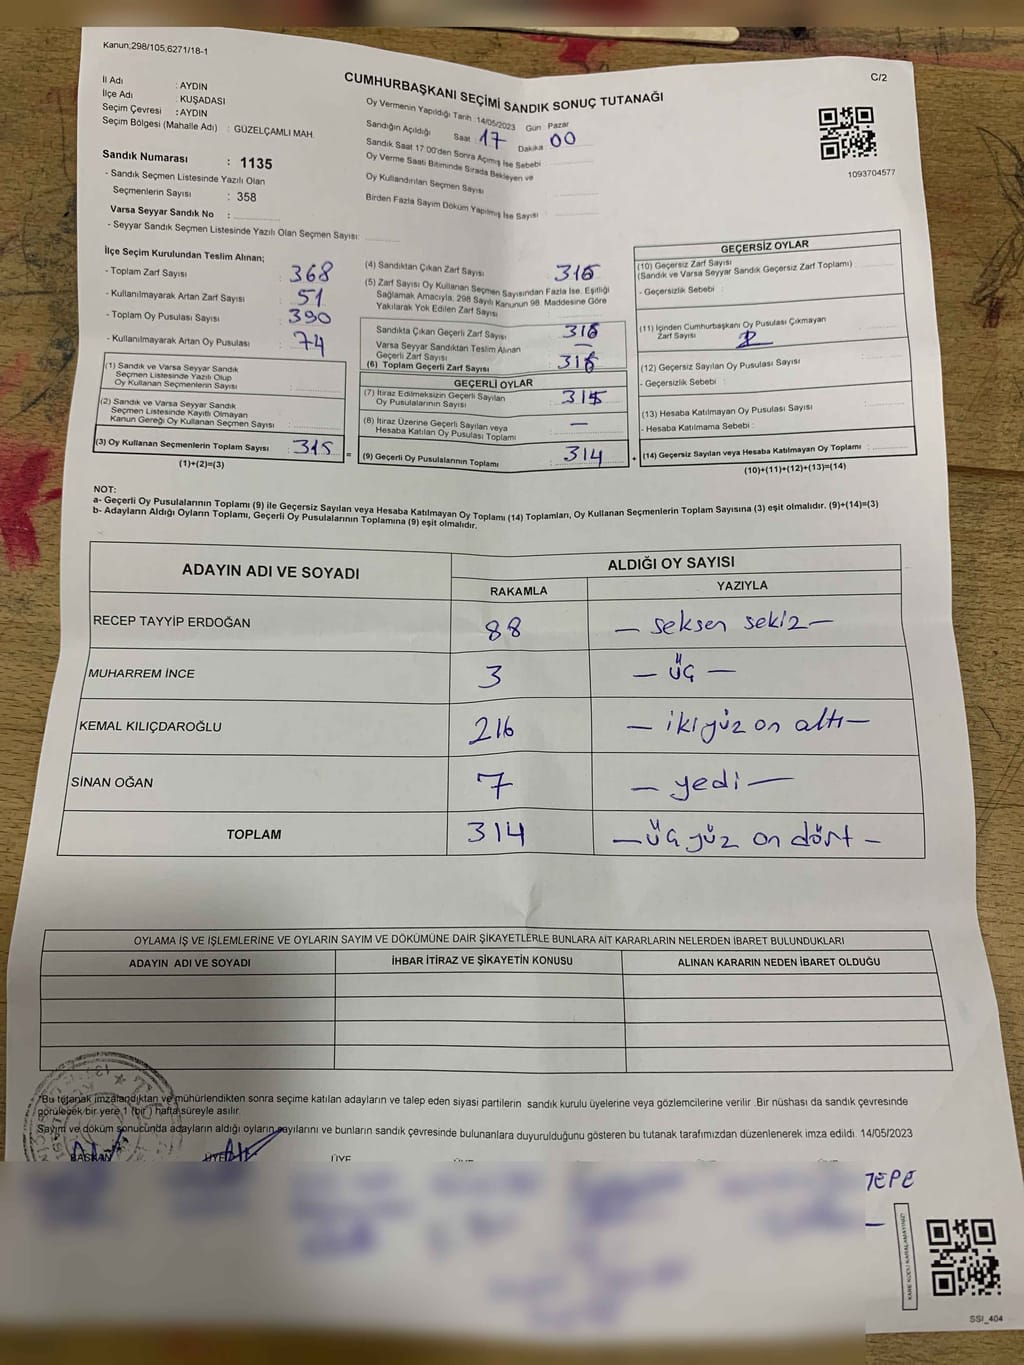 Kanun,298/105,6271/18-1
C/2
CUMHURBAŞKANI SEÇİMİ SANDIK SONUÇ TUTANAĞI
İl Adı : AYDIN
İlçe Adı : KUŞADASI
Seçim Çevresi : AYDIN
Seçim Bölgesi (Mahalle Adı) : GÜZELÇAMLI MAH.
Sandık Numarası : 1135
- Sandık Seçmen Listesinde Yazılı Olan
Seçmenlerin Sayısı : 358
Varsa Seyyar Sandık No :
- Seyyar Sandık Seçmen Listesinde Yazılı Olan Seçmen Sayısı:
Oy Vermenin Yapıldığı Tarih 14/05/2023 Gün : Pazar
Sandığın Açıldığı Saat 17 Dakika 00
Sandık Saat 17:00'den Sonra Açımış İse Sebebi
Oy Verme Saati Bitiminde Sırada Bekleyen ve
Oy Kullandırılan Seçmen Sayısı
Birden Fazla Sayım Döküm Yapılmış İse Sayısı
1093704577
İlçe Seçim Kurulundan Teslim Alınan;
- Toplam Zarf Sayısı : 368
- Kullanılmayarak Artan Zarf Sayısı : 51
- Toplam Oy Pusulası Sayısı : 390
- Kullanılmayarak Artan Oy Pusulası : 74
(1) Sandık ve Varsa Seyyar Sandık
Seçmen Listesinde Yazılı Olup
Oy Kullanan Seçmenlerin Sayısı
(2) Sandık ve Varsa Seyyar Sandık
Seçmen Listesinde Kayıtlı Olmayan
Kanun Gereği Oy Kullanan Seçmen Sayısı :
(3) Oy Kullanan Seçmenlerin Toplam Sayısı : 315
(1)+(2)=(3)
(4) Sandıktan Çıkan Zarf Sayısı
(5) Zarf Sayısı Oy Kullanan Seçmen Sayısından Fazla İse, Eşitliği
Sağlamak Amacıyla, 298 Sayılı Kanunun 98. Maddesine Göre
Yakılarak Yok Edilen Zarf Sayısı
Sandıkta Çıkan Geçerli Zarf Sayısı
Varsa Seyyar Sandıktan Teslim Alınan
Geçerli Zarf Sayısı —
(6) Toplam Geçerli Zarf Sayısı
GEÇERLİ OYLAR
(7) İtiraz Edilmeksizin Geçerli Sayılan
Oy Pusulalarının Sayısı
(8) İtiraz Üzerine Geçerli Sayılan veya
Hesaba Katılan Oy Pusulası Toplamı : —
= (9) Geçerli Oy Pusulalarının Toplamı : 314
GEÇERSİZ OYLAR
(10) Geçersiz Zarf Sayısı
(Sandık ve Varsa Seyyar Sandık Geçersiz Zarf Toplamı)
- Geçersizlik Sebebi :
(11) İçinden Cumhurbaşkanı Oy Pusulası Çıkmayan
Zarf Sayısı
(12) Geçersiz Sayılan Oy Pusulası Sayısı
- Geçersizlik Sebebi :
(13) Hesaba Katılmayan Oy Pusulası Sayısı
- Hesaba Katılmama Sebebi :
+ (14) Geçersiz Sayılan veya Hesaba Katılmayan Oy Toplamı :
(10)+(11)+(12)+(13)=(14)
NOT:
a- Geçerli Oy Pusulalarının Toplamı (9) ile Geçersiz Sayılan veya Hesaba Katılmayan Oy Toplamı (14) Toplamları, Oy Kullanan Seçmenlerin Toplam Sayısına (3) eşit olmalıdır. (9)+(14)=(3)
b- Adayların Aldığı Oyların Toplamı, Geçerli Oy Pusulalarının Toplamına (9) eşit olmalıdır.
ADAYIN ADI VE SOYADI
ALDIĞI OY SAYISI
RAKAMLA YAZIYLA
RECEP TAYYİP ERDOĞAN 88 — seksen sekiz —
MUHARREM İNCE 3 — üç —
KEMAL KILIÇDAROĞLU 216 — ikiyüz on altı —
SİNAN OĞAN 7 — yedi —
TOPLAM 314 — üçyüz on dört —
OYLAMA İŞ VE İŞLEMLERİNE VE OYLARIN SAYIM VE DÖKÜMÜNE DAİR ŞİKAYETLERLE BUNLARA AİT KARARLARIN NELERDEN İBARET BULUNDUKLARI
ADAYIN ADI VE SOYADI İHBAR İTİRAZ VE ŞİKAYETİN KONUSU ALINAN KARARIN NEDEN İBARET OLDUĞU
*Bu tutanak imzalandıktan ve mühürlendikten sonra seçime katılan adayların ve talep eden siyasi partilerin sandık kurulu üyelerine veya gözlemcilerine verilir .Bir nüshası da sandık çevresinde
görülecek bir yere 1 (bir ) hafta süreyle asılır.
Sayım ve döküm sonucunda adayların aldığı oyların sayılarını ve bunların sandık çevresinde bulunanlara duyurulduğunu gösteren bu tutanak tarafımızdan düzenlenerek imza edildi. 14/05/2023
BAŞKAN ÜYE ÜYE
TEPE
KARE KODU KARALAMAYINIZ!
SSI_404